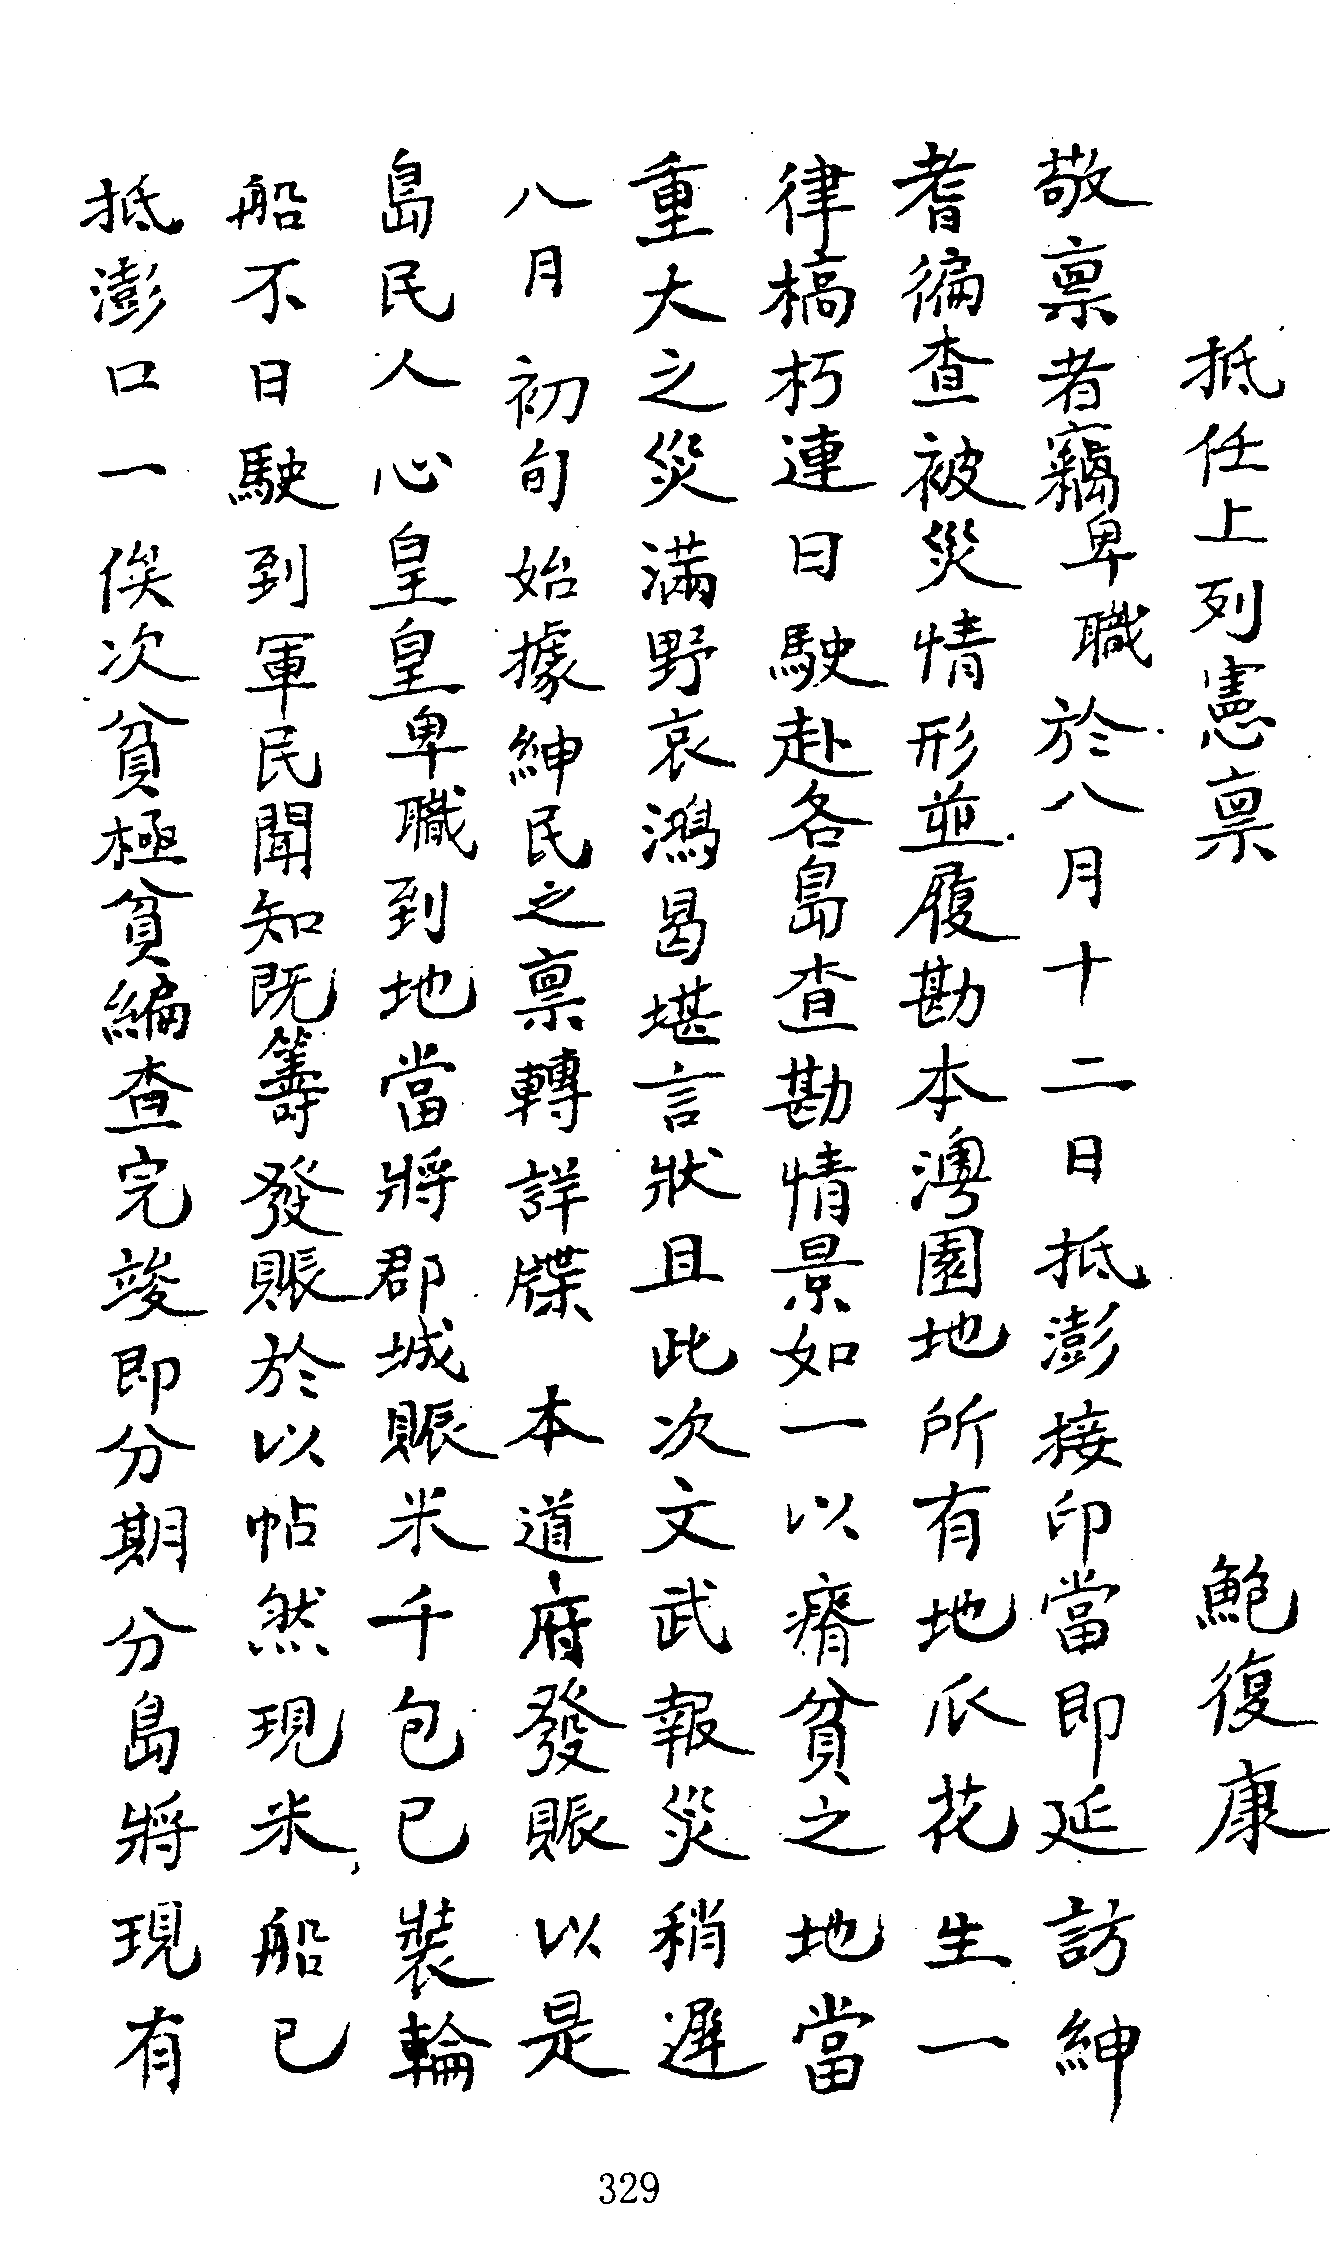 抵任上列憲稟　鮑復康
敬稟者竊卑職於八月十二日抵澎接印當即延訪紳
耆徧查被災情形並履勘本澳園地所有地瓜花生一
律槁朽連日駛赴各島查勘情景如一以瘠貧之地當
重大之災滿野哀鴻曷堪言狀且此次文武報災稍遲
八月初旬始據紳民之稟轉詳牒　本道府發賬以是
島民人心皇皇卑職到地當將郡城賬米千包已裝輪
船不日駛到軍民聞知既籌發賬於以帖然現米船已
抵澎口一俟次貧極貧編查完竣即分期分島將現有
329